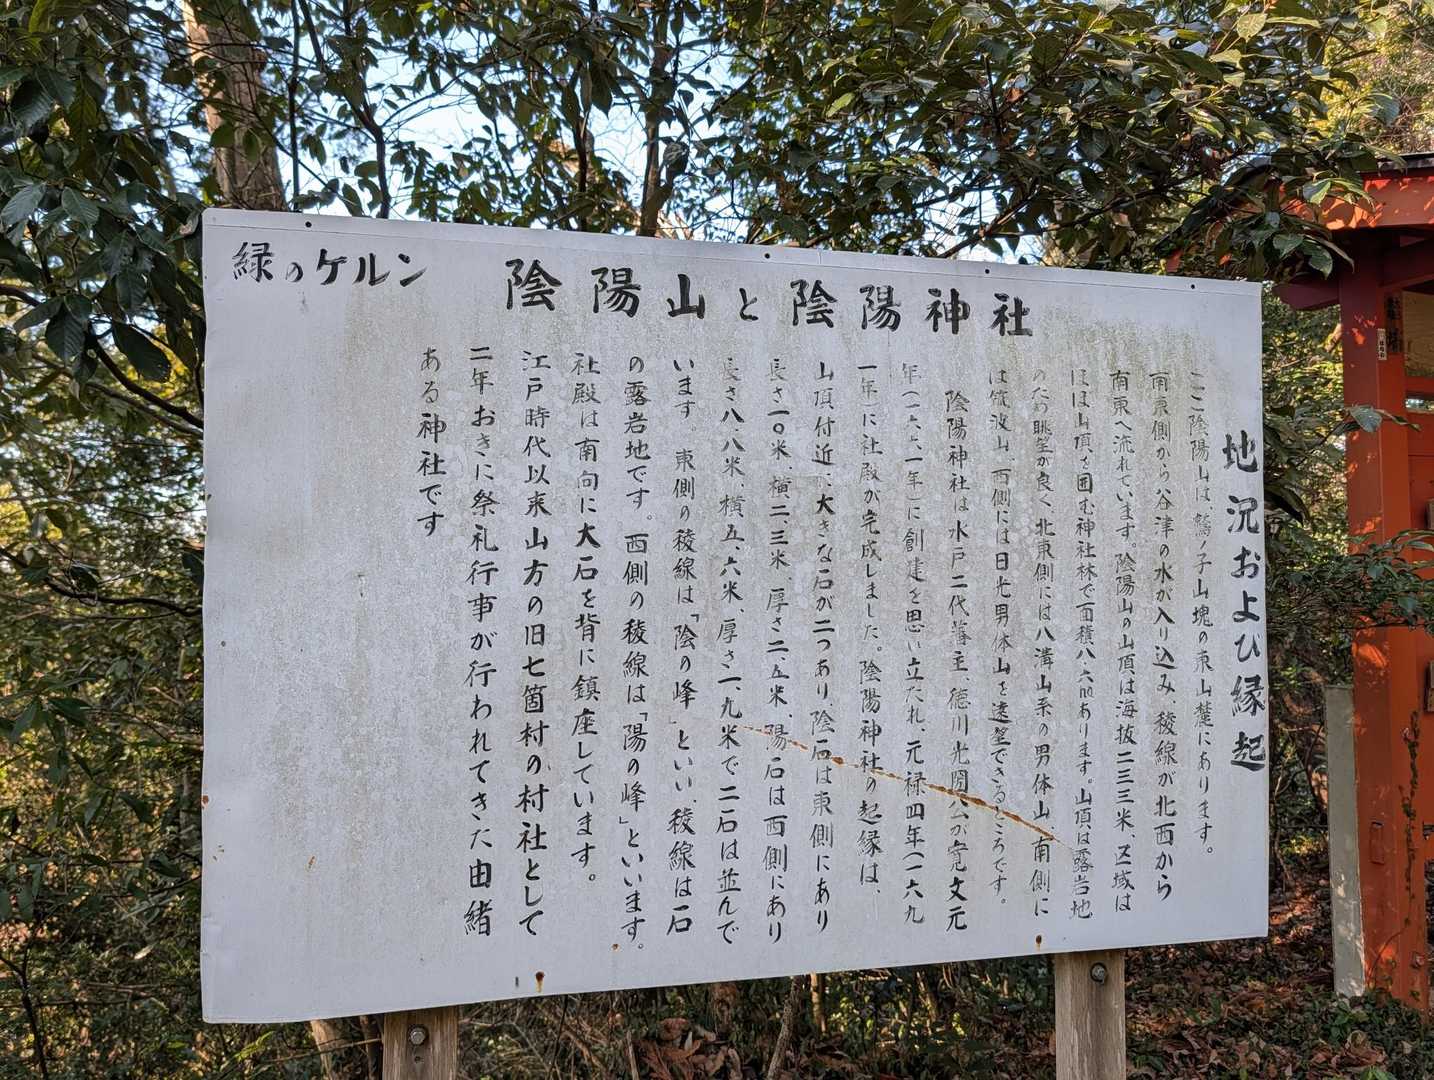 緑のケルン
陰陽山と陰陽神社
地況および縁起
ここ陰陽山は鷲子山塊の東山麓にあります。
南東側から谷津の水が入り込み、稜線が北西から
南東へ流れています。陰陽山の山頂は海抜二三三米、区域は
ほぼ山頂を囲む神社林で面積八・六haあります。山頂は露岩地
のため眺望が良く、北東側には八溝山系の男体山、南側に
は筑波山、西側には日光男体山を遠望できるところです。
陰陽神社は水戸二代藩主、徳川光圀公が寛文元
年(一六六一年)に創建を思い立たれ、元禄四年(一六九
一年)に社殿が完成しました。陰陽神社の起縁は、
山頂付近に大きな石が二つあり、陰石は東側にあり
長さ一〇米、横二、三米、厚さ二、五米、陽石は西側にあり
長さ八・八米、横五、六米、厚さ一、九米で二石は並んで
います。東側の稜線は「陰の峰」といい、稜線は石
の露岩地です。西側の稜線は「陽の峰」といいます。
社殿は南向に大石を背に鎮座しています。
江戸時代以来山方の旧七箇村の村社として
二年おきに祭礼行事が行われてきた由緒
ある神社です